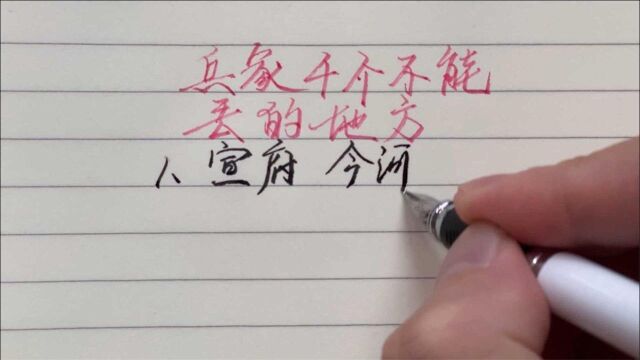 兵家千个不能
丢的地方
1、宣府 今河